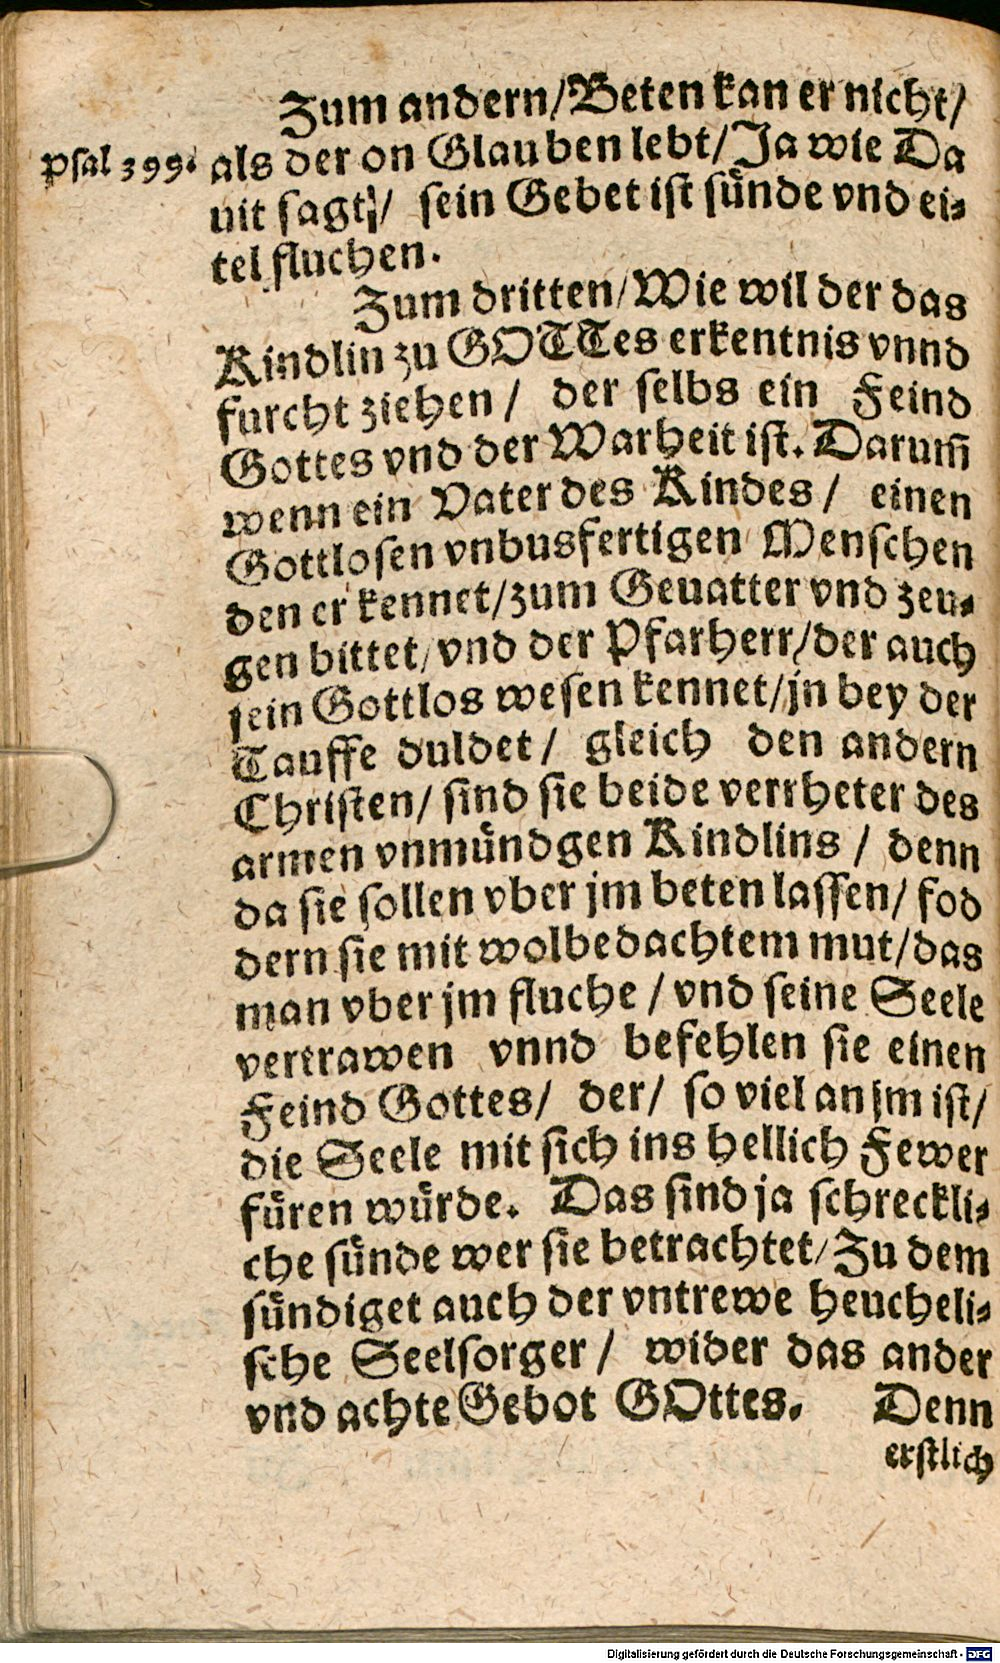 Zum andern/Beten kan er nicht/
Psal 399. als der on Glauben lebt/Ja wie Da
uit sagt/ sein Gebet ist sünde vnd ei-
tel fluchen.
Zum dritten/Wie wil der das
Kindlin zu GOTTes erkentnis vnnd
furcht ziehen / der selbs ein Feind
Gottes vnd der Warheit ist. Darum̄
wenn ein Vater des Kindes / einen
Gottlosen vnbusfertigen Menschen
den er kennet/zum Geuatter vnd zeu-
gen bittet/vnd der Pfarherr/der auch
sein Gottlos wesen kennet/jn bey der
Tauffe duldet / gleich den andern
Christen/ sind sie beide verrheter des
armen vnmündgen Kindlins / denn
da sie sollen vber jm beten lassen/ fod
dern sie mit wolbedachtem mut/das
man vber jm fluche / vnd seine Seele
vertrawen vnnd befehlen sie einen
Feind Gottes/ der/ so viel an jm ist/
die Seele mit sich ins hellich Fewer
füren würde. Das sind ja schreckli-
che sünde wer sie betrachtet/Zu dem
sündiget auch der vntrewe heucheli-
sche Seelsorger / wider das ander
vnd achte Gebot GOttes. Denn
erstlich
Digitalisierung gefördert durch die Deutsche Forschungsgemeinschaft - DFG